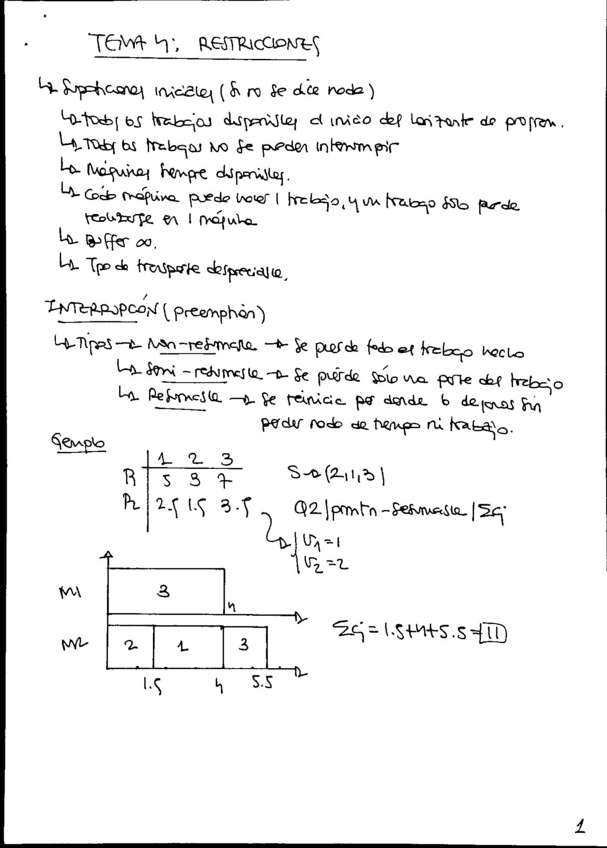 TEMA 4: RESTRICCIONES
↳ Suposiciones iniciales (Si no se dice nada)
↳ Todos los trabajos disponibles al inicio del horizonte de program.
↳ Todos los trabajos no se pueden interrumpir
↳ Máquinas siempre disponibles.
↳ Cada máquina puede hacer 1 trabajo, y un trabajo sólo puede
realizarse en 1 máquina
↳ Buffer ∞.
↳ Tpo de transporte despreciable.
INTERRUPCIÓN (preemption)
↳ Tipos → Non-resumable → Se pierde todo el trabajo hecho
↳ Semi-resumable → Se pierde sólo una parte del trabajo
↳ Resumable → Se reinicia por donde lo dejamos sin
perder nada de tiempo ni trabajo.
Ejemplo
1 2 3
P₁ 5 3 7
P₂ 2.5 1.5 3.5
S→(2,1,3)
Q2|prmtn-resumable|ΣCj
V₁=1
V₂=2
M1 3
4
M2 2 1 3
1.5 4 5.5
ΣCj=1.5+4+5.5=11
1